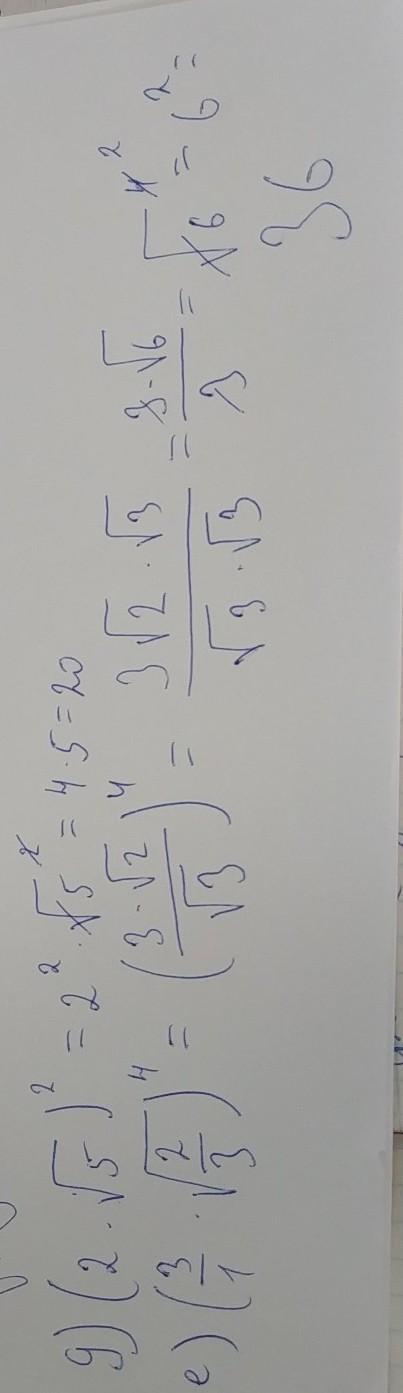 g) (2 · √5)² = 2² · √5² = 4 · 5 = 20
e) (3/1 · √(2/3))⁴ = (3 · √2 / √3)⁴ = 3√2 · √3 / √3 · √3 = 3 · √6 / 3 = √6⁴ ² = 6² =
36